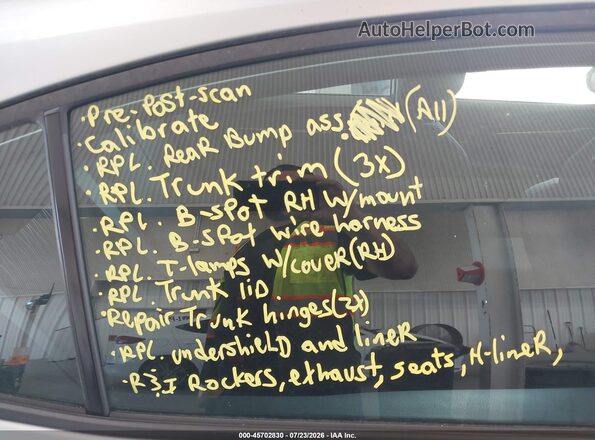 AutoHelperBot.com
·Pre-Post-scan
·Calibrate
·RPL. ReaR Bump ass. (All)
·RPL. Trunk trim (3x)
·RPL. B-spot RH W/mount
·RPL. B-spot wire harness
·RPL. T-lamps W/coveR(RH)
·RPL. Trunk lid
·Repair Trunk hinges(2x)
·RPL. undershield and lineR
·R&I Rockers, exhaust, seats, H-lineR,
000-45702830 - 07/23/2026 - IAA Inc.